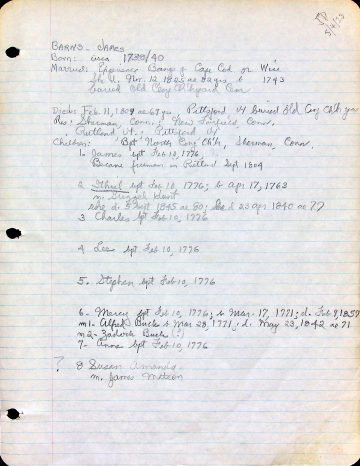 JP
5/1/93
BARNS - JAMES
Born: circa 1738/40
Married: Experience Bangs of Cape Cod or Wise
She d. Nov. 12, 1825 ae 82 yrs b 1743
buried Old Cong Chchyard Cem
Died: Feb. 11, 1809 ae 69 yrs Pittsford Vt buried Old Cong Chchyd
Res: Sherman, Conn.; New Fairfield Conn.
Rutland Vt.; Pittsford Vt
Children: Bpt North Cong Ch'h, Sherman, Conn.
1. James bpt Feb. 10, 1776
Became freeman in Rutland Sept 1804
2. Ithiel bpt Feb. 10, 1776; b Apr 17, 1763
m. Hunt
d. 5 1845 ae 80; She d 23 Apr 1840 ae 77
3 Charles bpt Feb. 10, 1776
4. Lois bpt Feb. 10, 1776
5. Stephen bpt Feb. 10, 1776
6- Mercy bpt Feb 10, 1776; b Mar. 17, 1771; d. Feb 9, 1857
m1- Alfred Buck b Mar 28, 1771; d. May 23, 1842 ae 71
m2- Zadock Buck (?)
7- Anna bpt Feb. 10, 1776
? 8 Susan Amanda
m. James Matson